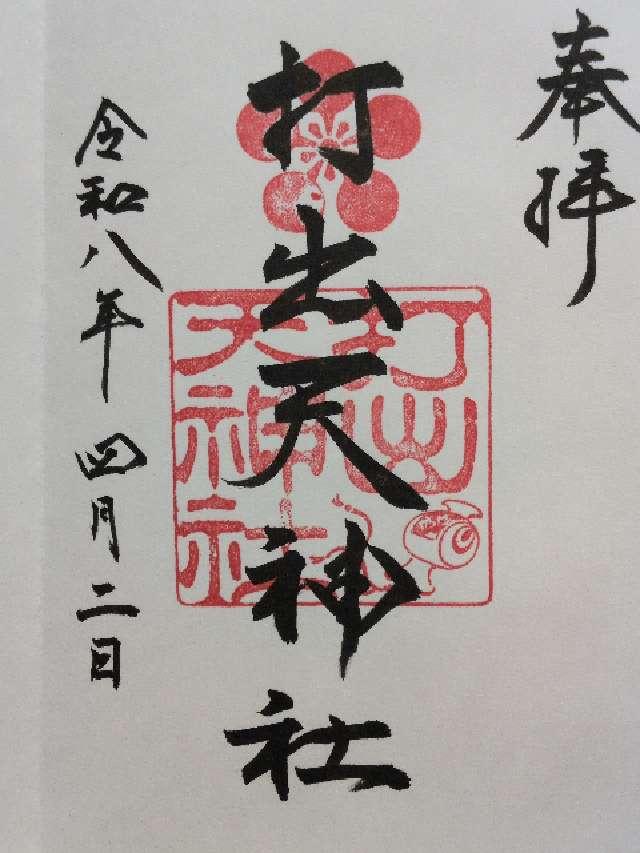 奉拝
打出天神社
打出
天神社
令和八年四月二日